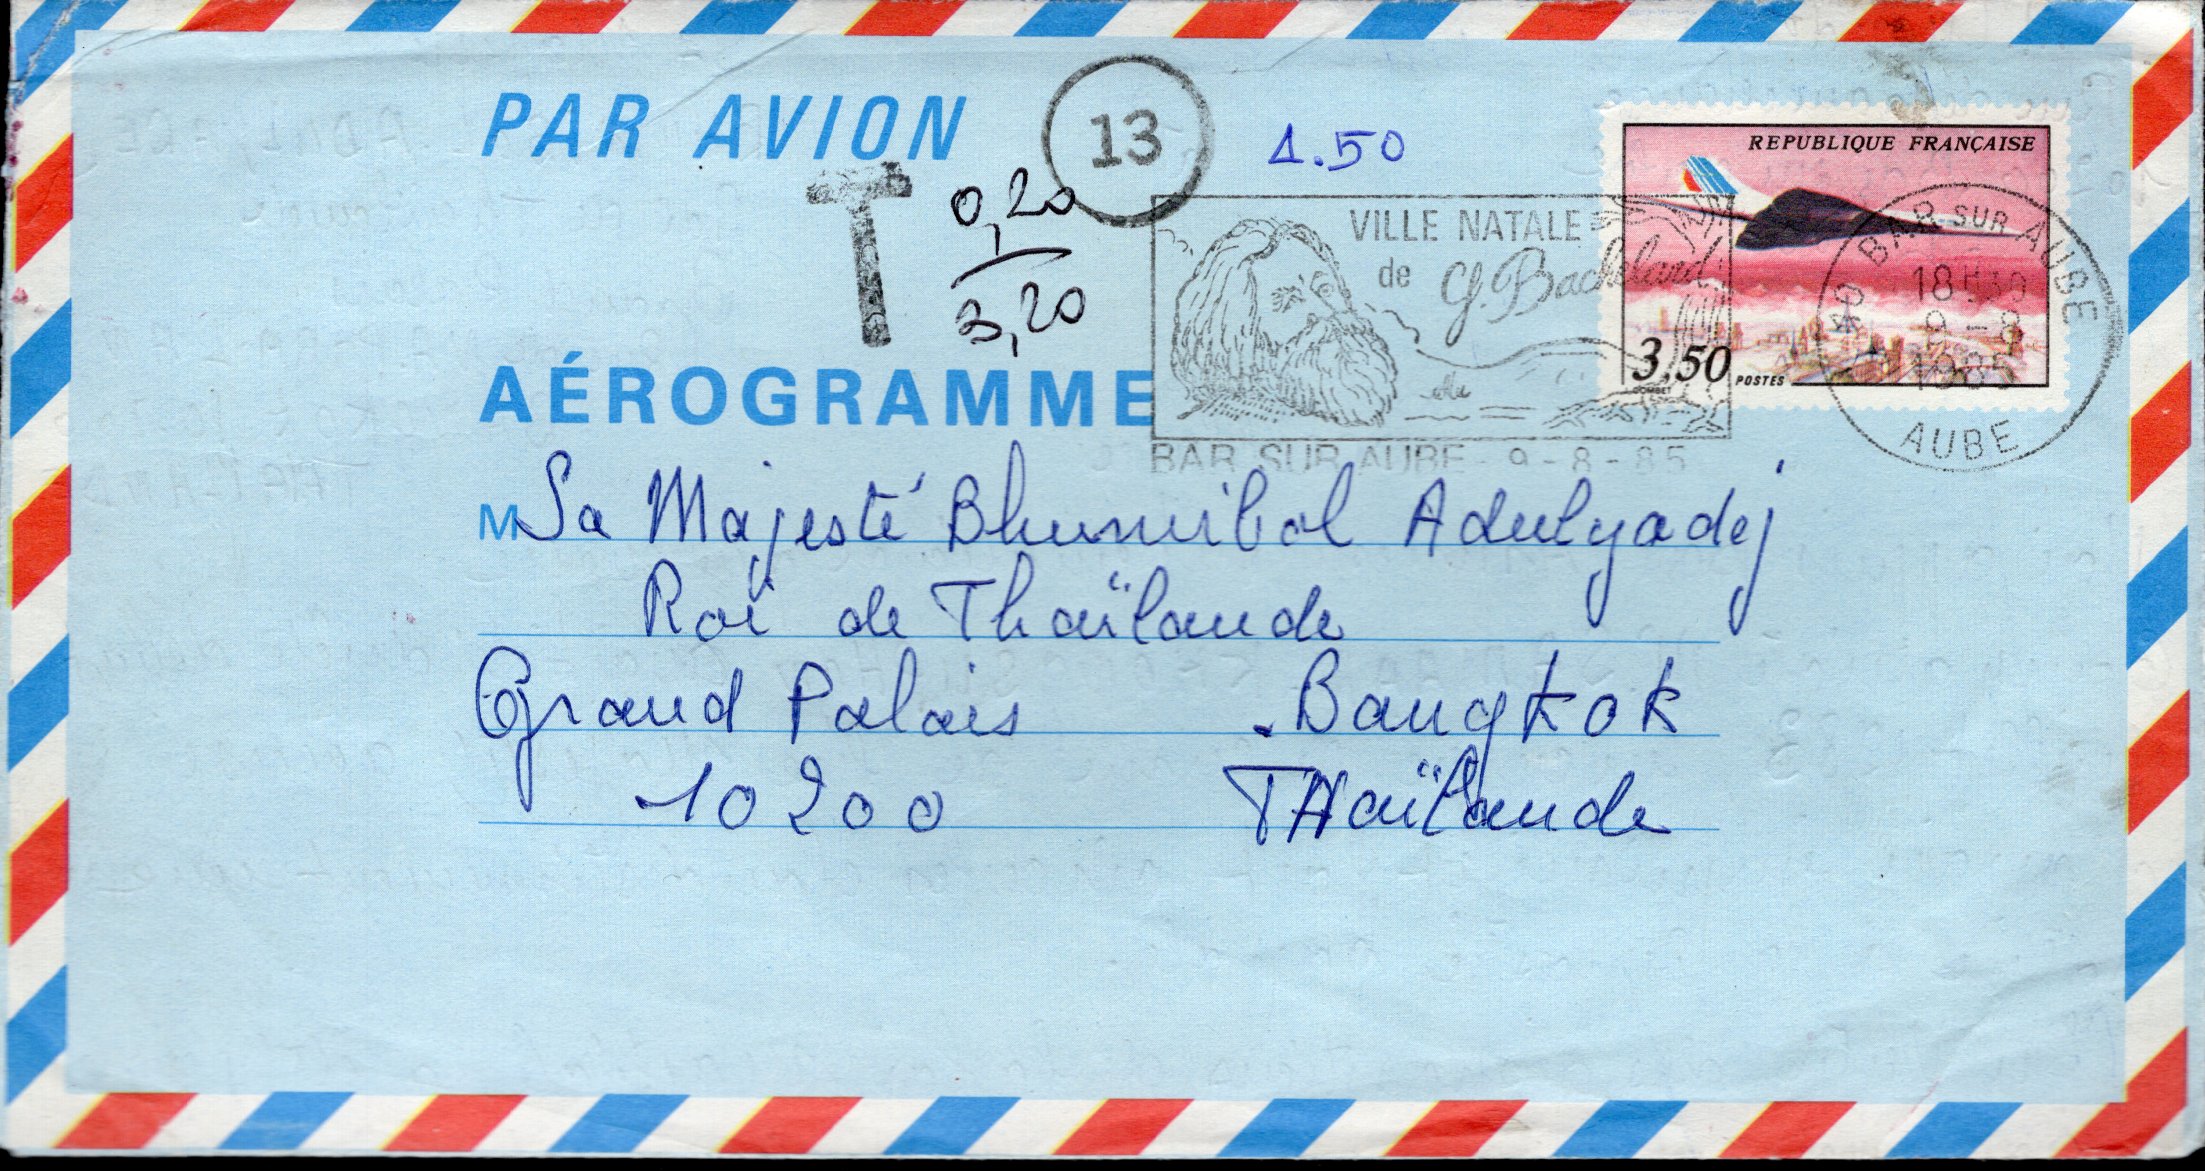 PAR AVION
13
1.50
REPUBLIQUE FRANÇAISE
T
0,20
3,20
VILLE NATALE
de G. Bachelard
3.50 POSTES
BAR SUR AUBE
18H30
9-8
1985
AUBE
AÉROGRAMME
BAR SUR AUBE - 9-8-85
M Sa Majesté Bhumibol Adulyadej
Roi de Thaïlande
Grand Palais . Bangkok
10200 THaïlande